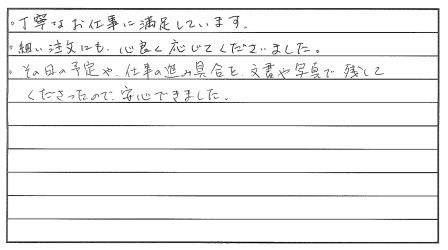 ・丁寧なお仕事に満足しています。
・細い注文にも、心良く応じてくださいました。
・その日の予定や、仕事の進み具合を、文書や写真で残して
くださったので、安心できました。